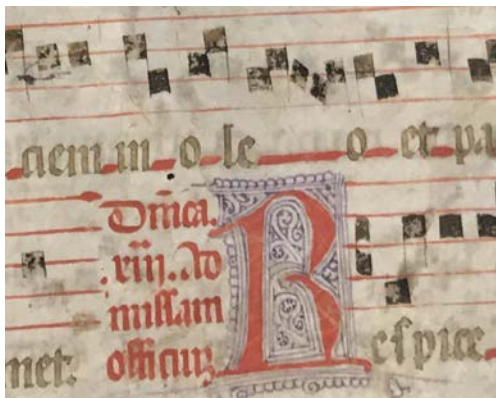 ciem in o le o et pa
Dñica.
.xiij. Ad
missam
officiuz
met. Respice